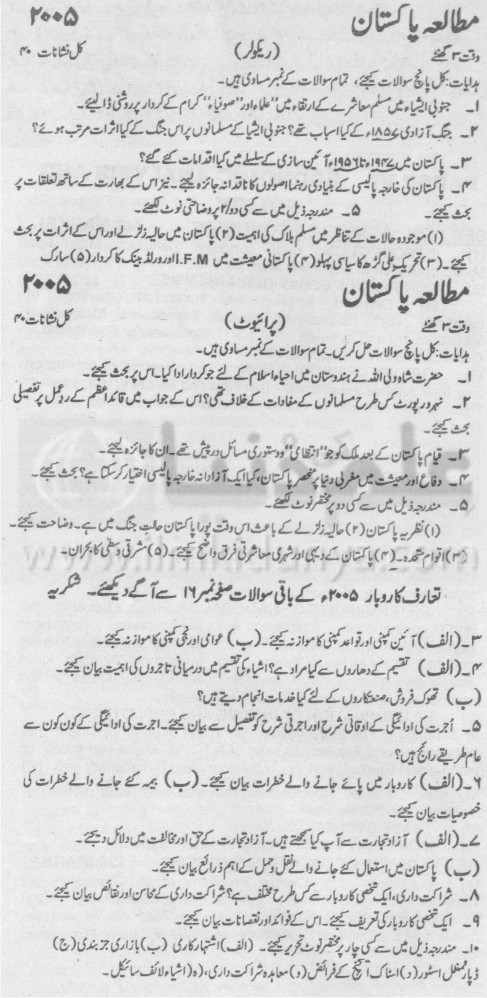 مطالعہ پاکستان ۲۰۰۵
وقت ۳ گھنٹے (ریگولر) کل نشانات ۴۰
ہدایات: کل پانچ سوالات کیجئے، تمام سوالات کے نمبر مساوی ہیں۔
۱۔ جنوبی ایشیاء میں مسلم معاشرے کے ارتقاء میں "علماء اور "صوفیاء" کرام کے کردار پر روشنی ڈالیئے۔
۲۔ جنگ آزادی ۱۸۵۷ء کے کیا اسباب تھے؟ جنوبی ایشیا کے مسلمانوں پر اس جنگ کے کیا اثرات مرتب ہوئے؟
۳۔ پاکستان میں ۱۹۴۷ء تا ۱۹۵۶ء آئین سازی کے سلسلے میں کیا اقدامات کئے گئے؟
۴۔ پاکستان کی خارجہ پالیسی کے بنیادی رہنما اصولوں کا ناقدانہ جائزہ لیجئے۔ نیز اس کے بھارت کے ساتھ تعلقات پر
بحث کیجئے۔ ۵۔ مندرجہ ذیل میں سے کسی دو/۲ پر وضاحتی نوٹ لکھئے۔
(۱) موجودہ حالات کے تناظر میں مسلم بلاک کی اہمیت (۲) پاکستان میں حالیہ زلزلے اور اس کے اثرات پر بحث
کیجئے۔ (۳) تحریک علی گڑھ کا سیاسی پہلو (۴) پاکستانی معیشت میں I.F.M اور ورلڈ بینک کا کردار (۵) سارک
مطالعہ پاکستان ۲۰۰۵
وقت ۳ گھنٹے (پرائیوٹ) کل نشانات ۴۰
ہدایات: کل پانچ سوالات حل کریں۔ تمام سوالات کے نمبر مساوی ہیں۔
۱۔ حضرت شاہ ولی اللہ نے ہندوستان میں احیاء اسلام کے لئے جو کردار ادا کیا۔ اس پر بحث کیجئے۔
۲۔ نہرو رپورٹ کس طرح مسلمانوں کے مفادات کے خلاف تھی؟ اس کے جواب میں قائد اعظم کے ردِ عمل پر تفصیلی
بحث کیجئے۔
۳۔ قیام پاکستان کے بعد ملک کو جو "انتظامی" و دستوری مسائل در پیش تھے۔ ان کا جائزہ لیجئے۔
۴۔ دفاع اور معیشت میں مغربی دنیا پر منحصر پاکستان، کیا ایک آزادانہ خارجہ پالیسی اختیار کر سکتا ہے؟ بحث کیجئے۔
۵۔ مندرجہ ذیل میں سے کسی دو پر مختصر نوٹ لکھئے۔
(۱) نظریہ پاکستان (۲) حالیہ زلزلے کے باعث اس وقت پورا پاکستان حالتِ جنگ میں ہے۔ وضاحت کیجئے۔
(۳) اقوام متحدہ۔ (۴) پاکستان کے دیہی اور شہری معاشرتی فرق واضح کیجئے۔ (۵) مشرق وسطیٰ کا بحران۔
تعارف کاروبار ۲۰۰۵ء کے باقی سوالات صفحہ نمبر ۱۶ سے آگے دیکھئے۔ شکریہ
۳۔ (الف) آئین کمپنی اور قواعد کمپنی کا موازنہ کیجئے۔ (ب) عوامی اور نجی کمپنی کا موازنہ کیجئے۔
۴۔ (الف) تقسیم کے دھاروں سے کیا مراد ہے؟ اشیاء کی تقسیم میں درمیانی تاجروں کی اہمیت بیان کیجئے۔
(ب) تھوک فروش، صنعتکاروں کے لئے کیا خدمات انجام دیتے ہیں؟
۵۔ اُجرت کی ادائیگی کے اوقاتی شرح اور اجرتی شرح کو تفصیل سے بیان کیجئے۔ اجرت کی ادائیگی کے کون کون سے
عام طریقے رائج ہیں؟
۶۔ (الف) کاروبار میں پائے جانے والے خطرات بیان کیجئے۔ (ب) بیمہ کئے جانے والے خطرات کی
خصوصیات بیان کیجئے۔
۷۔ (الف) آزاد تجارت سے آپ کیا سمجھتے ہیں۔ آزاد تجارت کے حق اور مخالفت میں دلائل دیجئے۔
(ب) پاکستان میں استعمال کئے جانے والے نقل و حمل کے اہم ذرائع بیان کیجئے۔
۸۔ شراکت داری، ایک شخصی کاروبار سے کس طرح مختلف ہے؟ شراکت داری کے محاسن اور نقائص بیان کیجئے۔
۹۔ ایک شخصی کاروبار کی تعریف کیجئے۔ اس کے فوائد اور نقصانات بیان کیجئے۔
۱۰۔ مندرجہ ذیل میں سے کسی چار پر مختصر نوٹ تحریر کیجئے۔ (الف) اشتہار کاری (ب) بازاری جز بندی (ج)
ڈپارٹمنٹل اسٹور (د) اسٹاک ایکسچینج کے فرائض (و) معاہدہ شراکت داری، (ہ) اشیاء لائف سائیکل۔